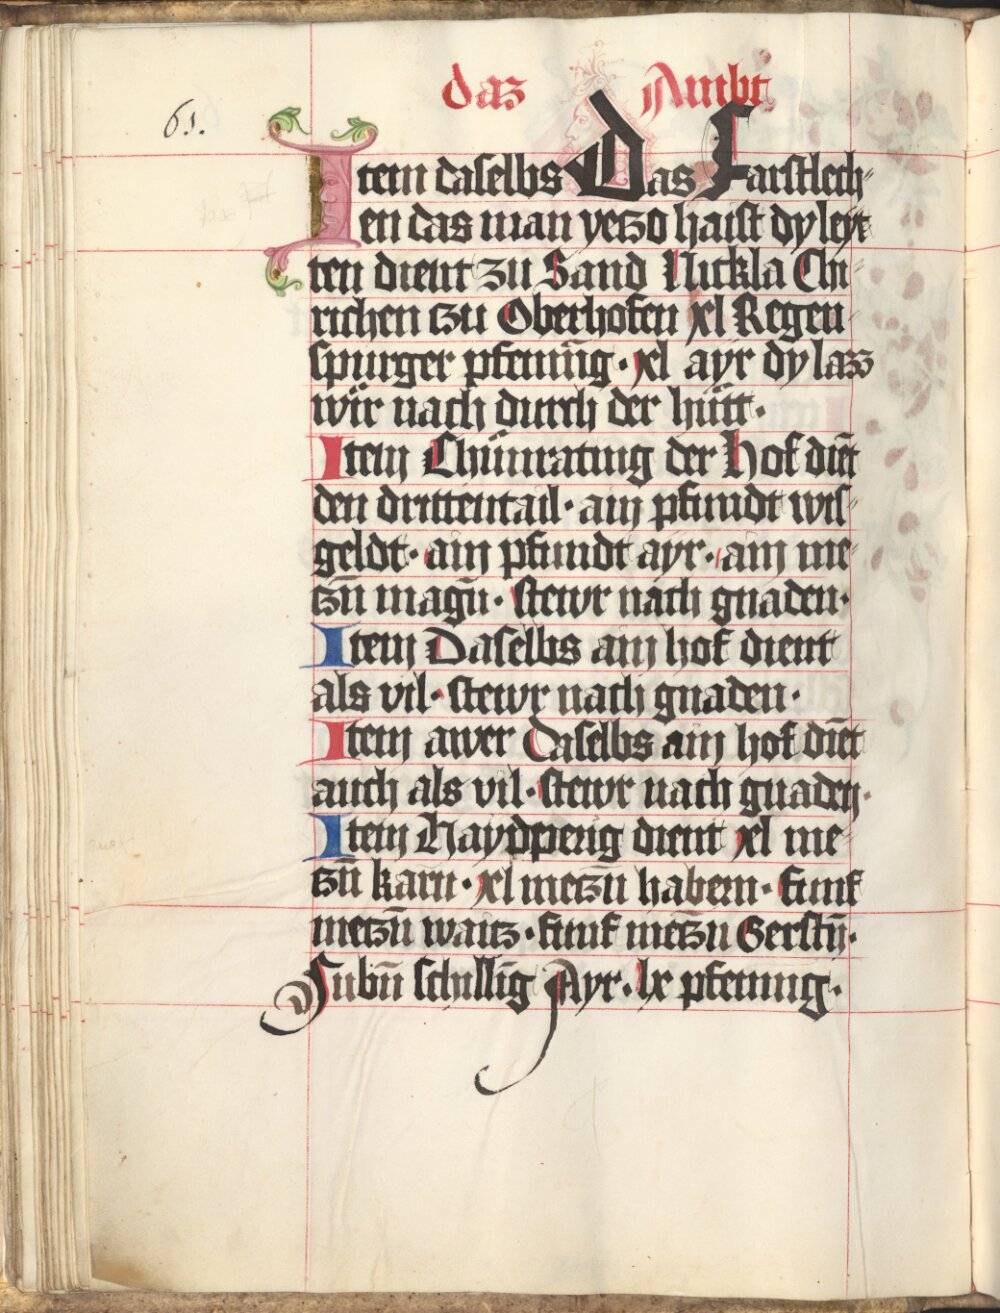 das Ambt
61.
Item daselbs Das Harstlech-
en das man yetzo haist dy leyt
ten dient zu Sand Nickla Chi
richen tzu Oberhofen xl Regen
spurger pfenni̅g · xl ayr dy lazz
wir nach durch der hütt ·
Item Chünrating der Hof die̅t
den drittentail · ain pfundt wis-
geldt · ain pfundt ayr · ain me-
tzn̅ magn̅ · stewr nach gnaden ·
Item Daselbs ain hof dient
als vil · stewr nach gnaden ·
Item awer Daselbs ain hof die̅t
auch als vil · stewr nach gnaden ·
Item Haydperig dient xl me-
tzn̅ karn · xl metzn̅ habern · funf
metzn̅ waitz · funf metzn̅ Gerstn̅ ·
Sibn̅ schilli̅g Ayr · lx pfenning ·